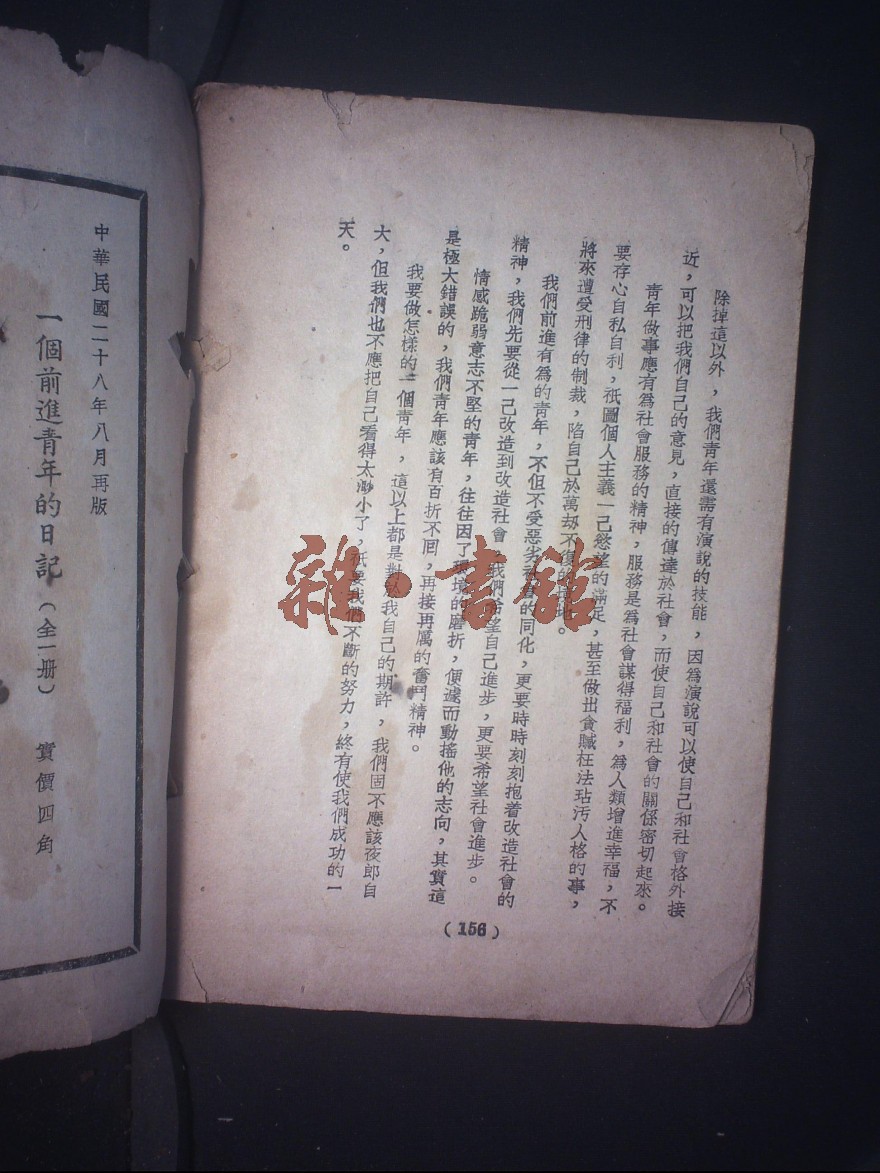 除掉這以外，我們青年還需有演說的技能，因為演說可以使自己和社會格外接
近，可以把我們自己的意見，直接的傳達於社會，而使自己和社會的關係密切起來。
青年做事應有為社會服務的精神，服務是為社會謀得福利，為人類增進幸福，不
要存心自私自利，祇圖個人主義一己慾望的滿足，甚至做出貪贓枉法玷污人格的事，
將來遭受刑律的制裁，陷自己於萬刼不復 地。
我們前進有為的青年，不但不受惡劣社會的同化，更要時時刻刻抱着改造社會的
精神，我們先要從一己改造到改造社會，我們希望自己進步，更要希望社會進步。
情感跪弱意志不堅的青年，往往因了環境的磨折，便遽而動搖他的志向，其實這
是極大錯誤的，我們青年應該有百折不囘，再接再厲的奮鬥精神。
我要做怎樣的一個青年，這以上都是對於我自己的期許，我們固不應該夜郎自
大，但我們也不應把自己看得太渺小了，祇要我們不斷的努力，終有使我們成功的一
天。
（156）
中華民國二十八年八月再版
一個前進青年的日記（全一册）
實價四角
雜·書館